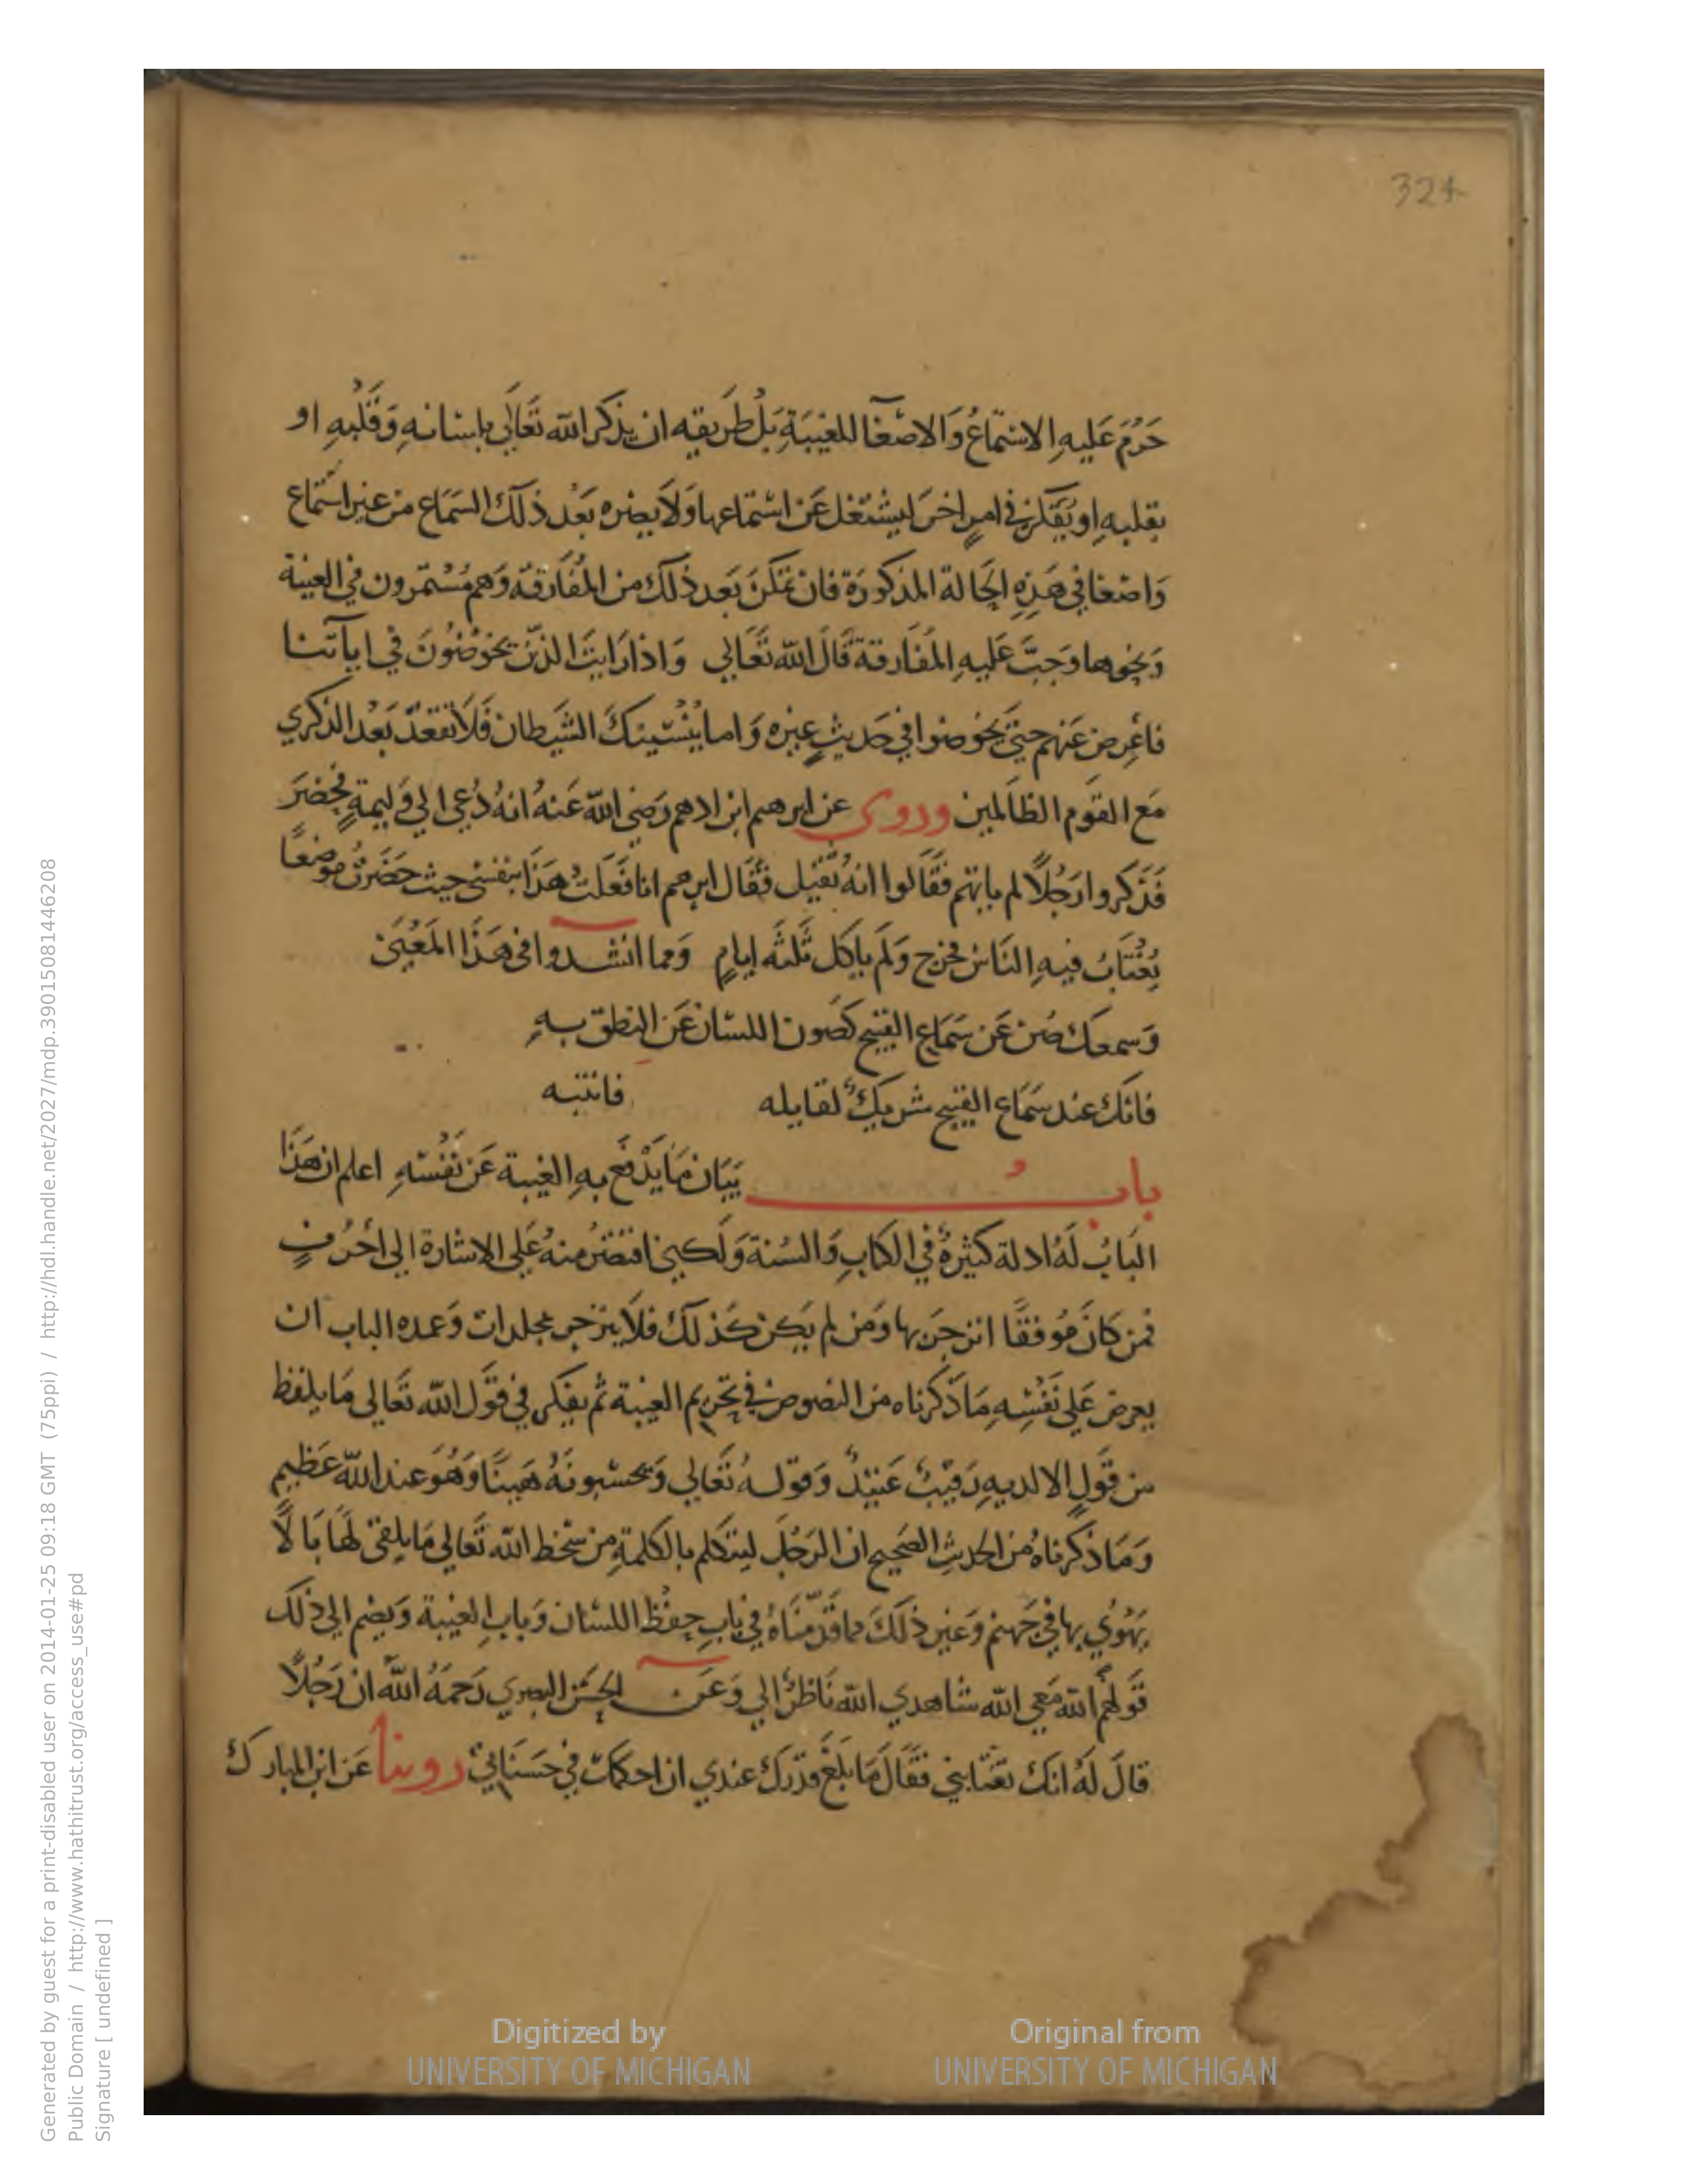 324
حَرُمَ عَلَيهِ الاستماعُ وَالاصغآ للغيبَةِ بَلْ طَريقه ان يذكر الله تعَالَى بلسانهِ وَقَلْبهِ او
بقلبهِ او يُفكر في امرٍ اخرَ ليشتغل عَن استماعها وَلَا يضره بَعْد ذلك السَمَاع من غير استماع
وَاصغا في هَذِهِ الحَالة المذكورَة فان تمَكنَ بَعد ذلك من المفَارقة وَهم مُسْتمرون في الغيبة
وَنحوها وَجبَ عَليهِ المفَارقة قَالَ الله تعَالي وَاذا رَايتَ الذين يخوضُونَ في اياتنا
فاعرض عَنهم حتىَ يَخوضوا في حَديثٍ غيره وَاما يُنْسينكَ الشيَطان فَلَا تقعدْ بَعْد الذكري
مَع القوم الظالمين وروى عن ابرهيم ابن ادهم رَضي الله عَنهُ انهُ دُعي الي وَليمةٍ فحضَرَ
فذَكروا رَجُلًا لم ياتهم فقَالوا انهُ ثقيل فقَال ابرهيم انا فَعَلتُ هَذَا بنفسي حيث حَضَرتُ موضعًا
يُغْتَابُ فيهِ النَاسُ فخرج وَلَم ياكل ثَلثه ايامٍ وَمما انشدوا في هَذَا المَعْنَى
وَسمعَك صُن عَن سَمَاع القبيح كصَون اللسان عَن النطق بهِ
فانك عند سَمَاع القبيح شريكٌ لقايله فانتبه
بابُ بَيَان مَا يَدْفَع بهِ الغيبة عَن نفْسهِ اعلم ان هَذَا
البَابُ لَهُ ادلة كثيرةٌ في الكتابِ وَالسُنة وَلَكني اقتصرُ منهُ عَلي الاشارة الي احْرُفٍ
فمن كانَ مُوفقًا انزجَر بها وَمَن لم يَكن كَذلك فلَا ينزجر بمجلدات وَعمده الباب ان
يعرض عَلي نَفْسِهِ مَا ذَكرناه من النصوص في تحريم الغيبة ثم يفكر في قوَل الله تعَالى مَا يلفظ
من قَولٍ الا لديهِ رَقيبٌ عَتيدٌ وَقوله تَعَالي وَتحسبونَهُ هَينًا وَهُوَ عند الله عَظيم
وَمَا ذكرناهُ من الحديثِ الصَحيح ان الرَجُلَ ليتَكلم بالكلمةِ من سَخط الله تَعَالي مَا يلقي لهَا بَالًا
يَهْوي بها في جَهنم وَغير ذلكَ مما قدّمنَاهُ في بَابِ حِفْظ اللسَان وَبابِ الغيبة وَيضم الي ذلك
قَولهُم الله مَعي الله شاهدي الله نَاظرٌ الي وَعَن الحسَن البصري رَحمَهُ الله ان رَجُلًا
قالَ لَهُ انك تغتابني فقَالَ مَا بَلَغَ قدرك عندي ان احكمك في حَسَنَاتي روينا عَن ابن المبارك
Digitized by
UNIVERSITY OF MICHIGAN
Original from
UNIVERSITY OF MICHIGAN
Generated by guest for a print-disabled user on 2014-01-25 09:18 GMT (75ppi) / http://hdl.handle.net/2027/mdp.39015081446208
Public Domain / http://www.hathitrust.org/access_use#pd
Signature [ undefined ]